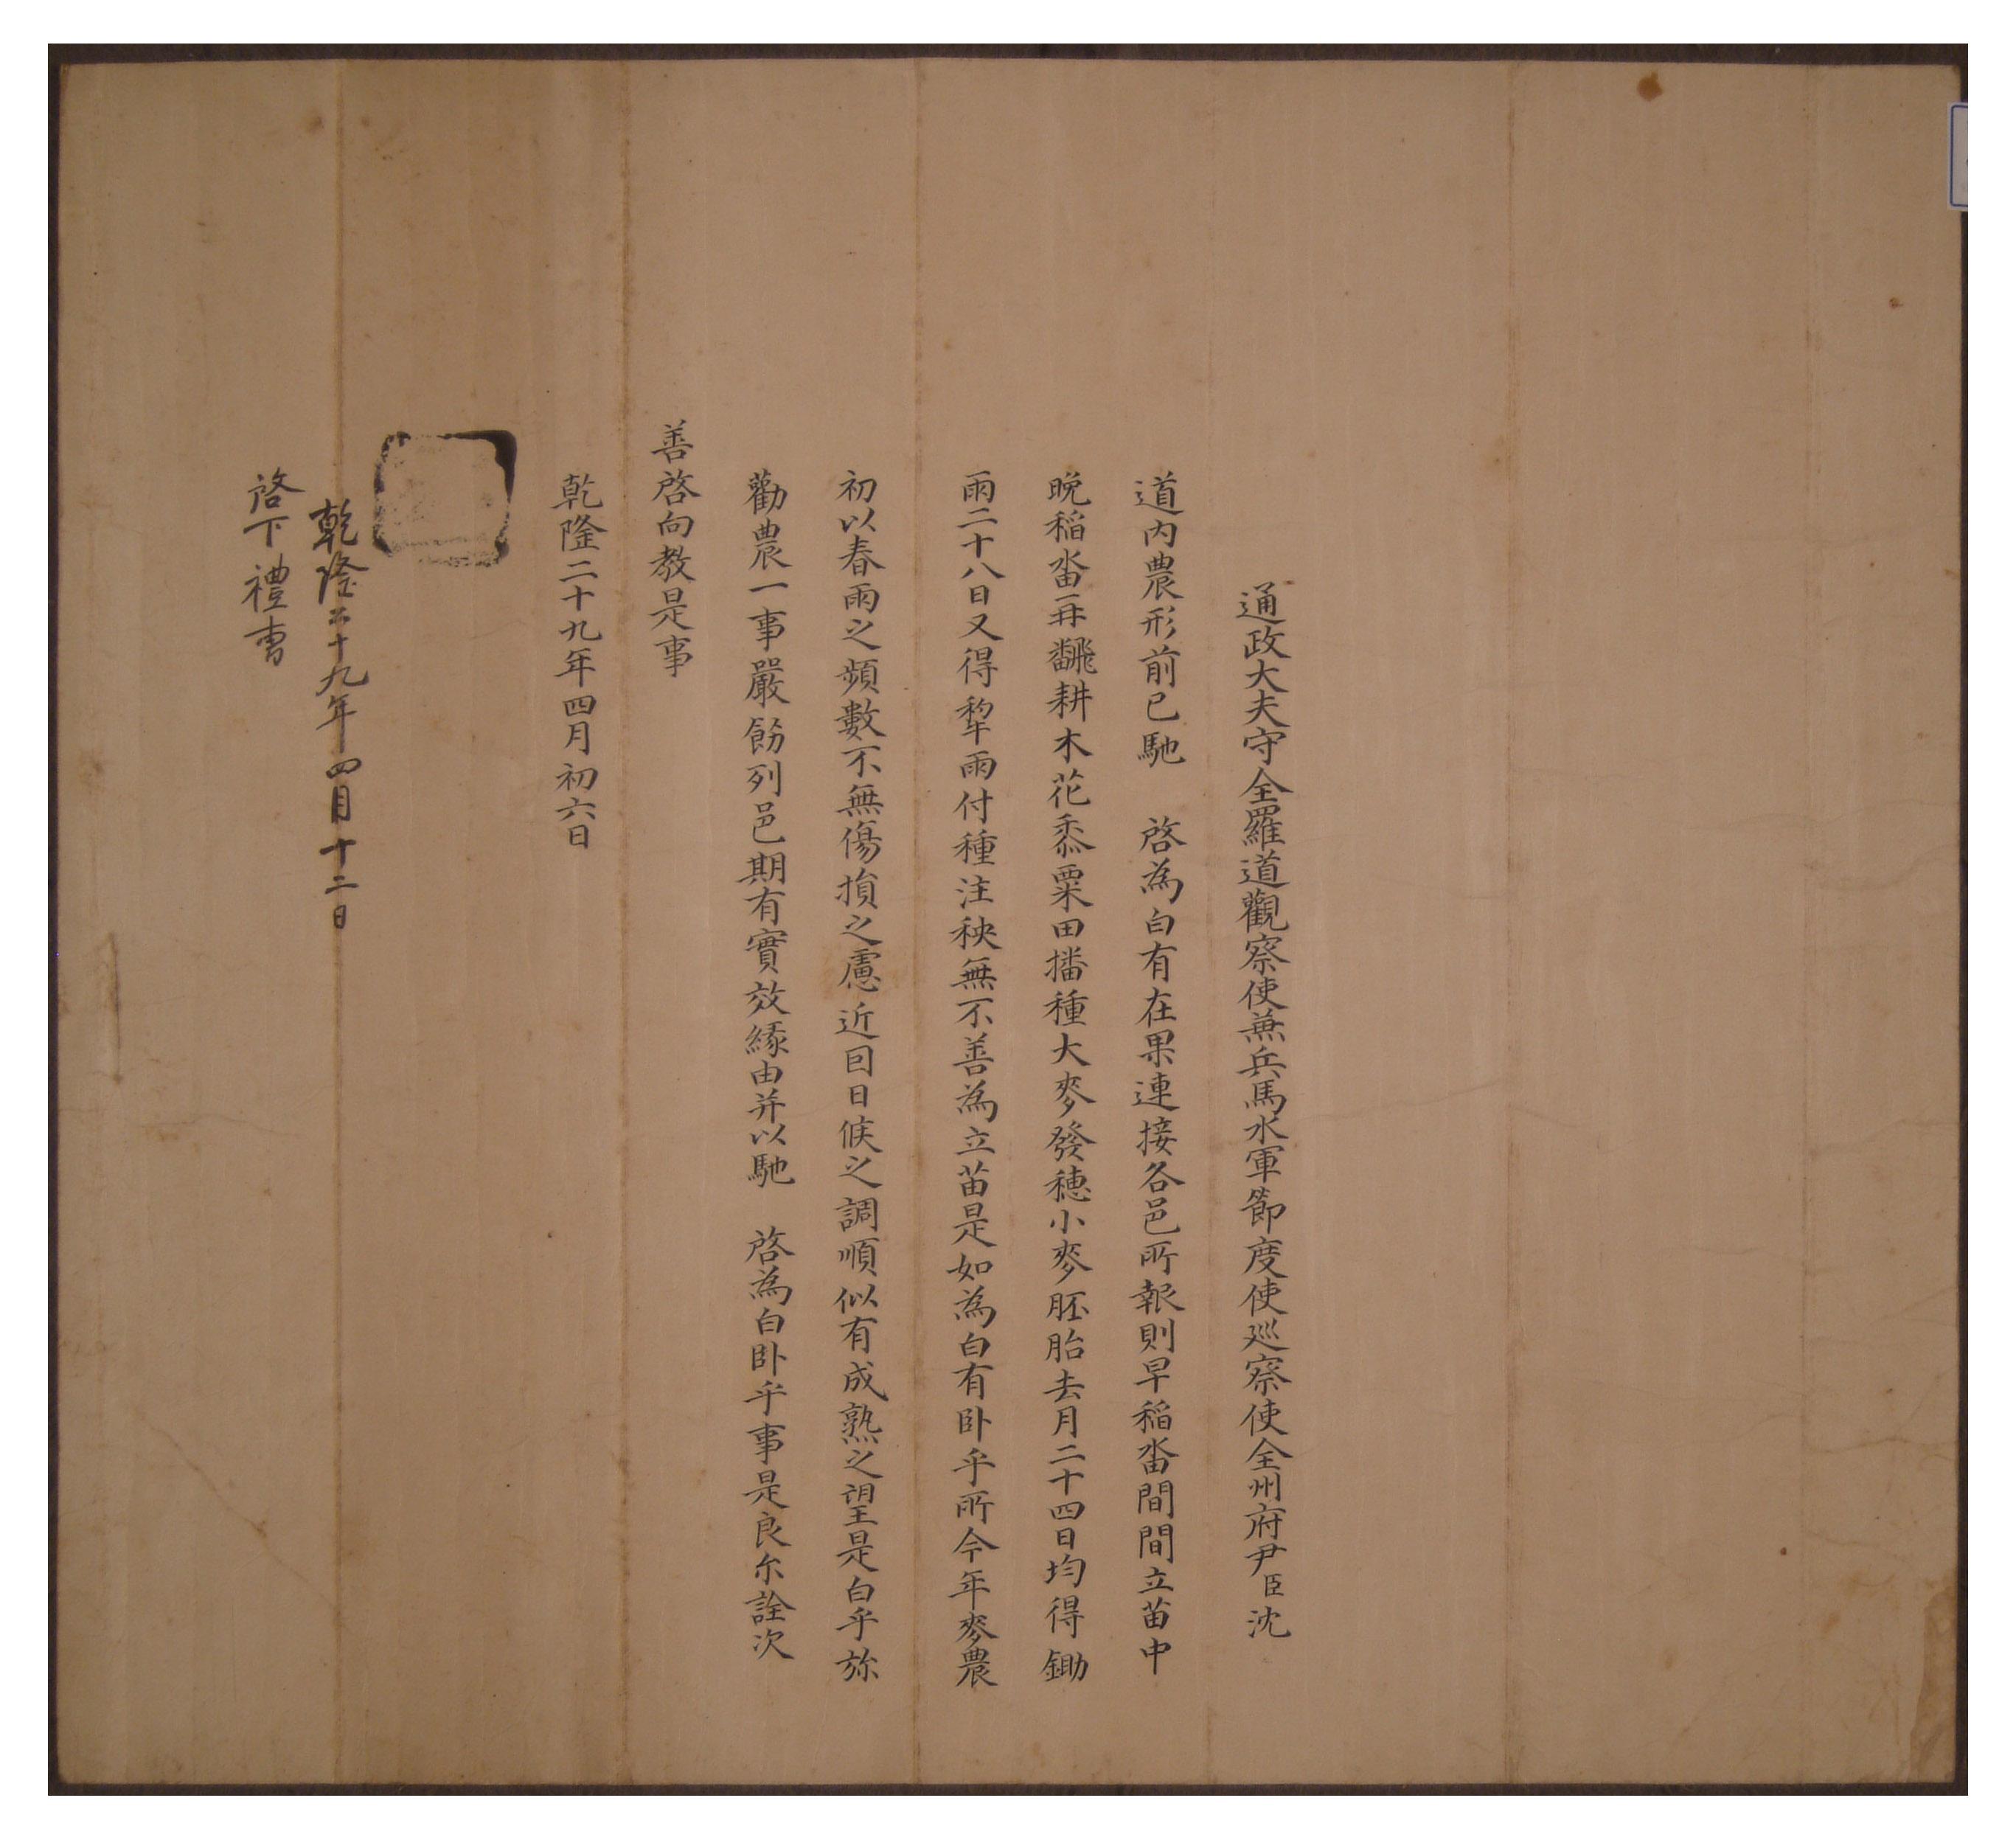 通政大夫守全羅道觀察使兼兵馬水軍節度使巡察使全州府尹臣沈
道内農形前已馳　啓為白有在果連接各邑所報則早稻畓間間立苗中
晚稻畓再飜耕木花黍粟田播種大麥發穗小麥胚胎去月二十四日均得鋤
雨二十八日又得犂雨付種注秧無不善為立苗是如為白有卧乎所今年麥農
初以春雨之頻數不無傷損之慮近囙日候之調順似有成熟之望是白乎旀
勸農一事嚴飭列邑期有實效緣由并以馳　啓為白卧乎事是良尔詮次
善啓向教是事
乾隆二十九年四月初六日
乾隆二十九年四月十二日
啓下禮曹